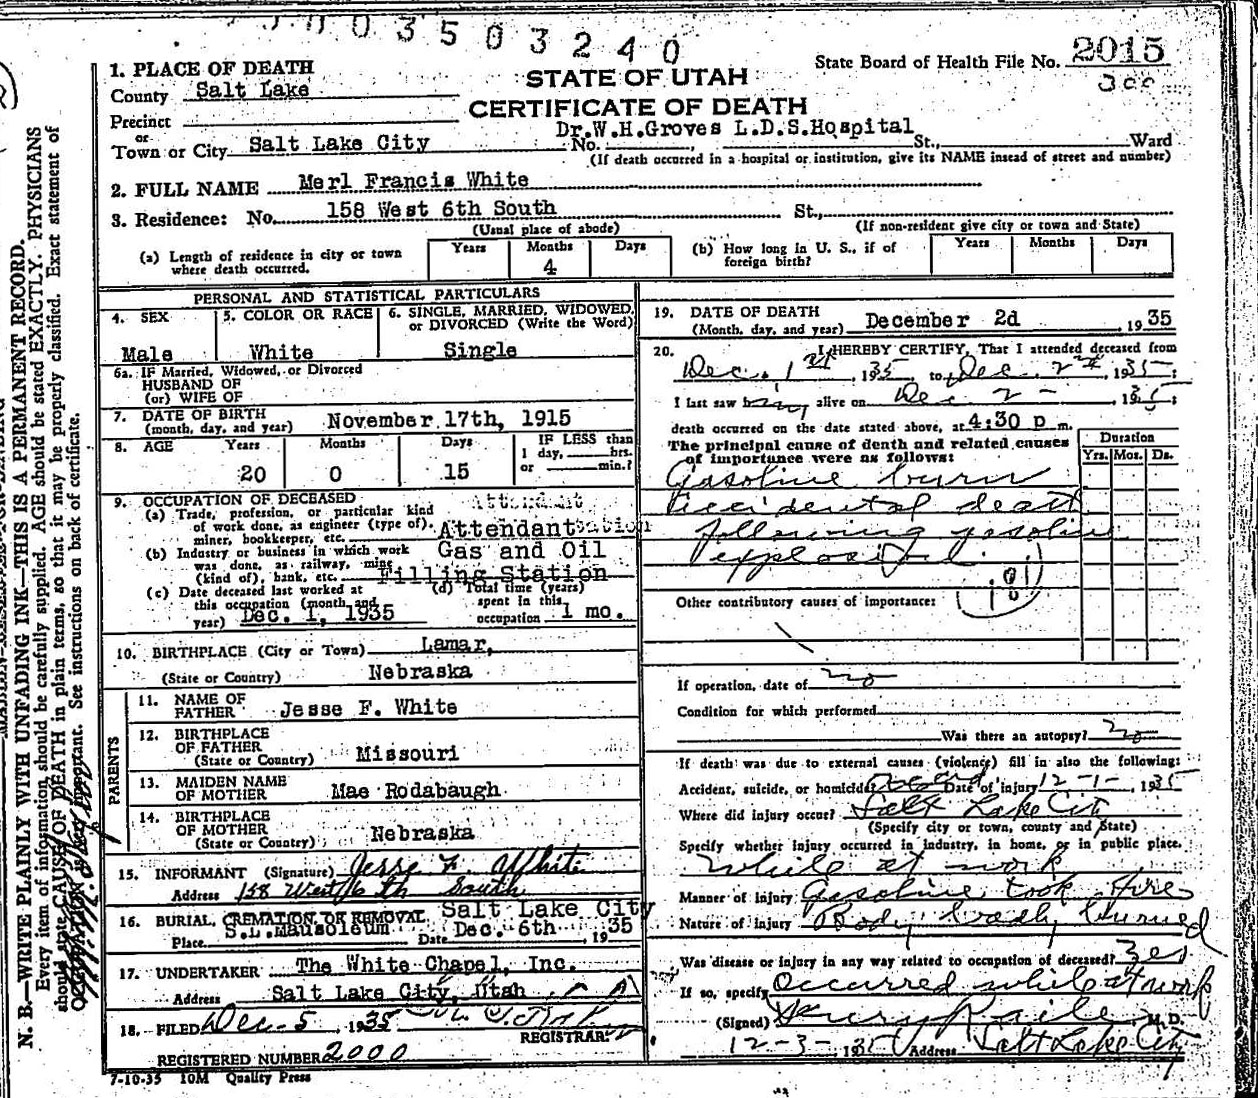 0003503240
State Board of Health File No. 2015
300
STATE OF UTAH
CERTIFICATE OF DEATH
1. PLACE OF DEATH
County Salt Lake
Precinct
or
Town or City Salt Lake City
Dr.W.H.Groves L.D.S.Hospital
No. , St., Ward
(If death occurred in a hospital or institution, give its NAME insead of street and number)
2. FULL NAME Merl Francis White
3. Residence: No. 158 West 6th South St.,
(Usual place of abode) (If non-resident give city or town and State)
(a) Length of residence in city or town where death occurred. Years Months 4 Days
(b) How long in U. S., if of foreign birth? Years Months Days
PERSONAL AND STATISTICAL PARTICULARS
4. SEX Male
5. COLOR OR RACE White
6. SINGLE, MARRIED, WIDOWED, or DIVORCED (Write the Word) Single
6a. IF Married, Widowed, or Divorced
HUSBAND OF
(or) WIFE OF
7. DATE OF BIRTH (month, day, and year) November 17th, 1915
8. AGE Years 20 Months 0 Days 15
IF LESS than 1 day, hrs. or min.?
9. OCCUPATION OF DECEASED
(a) Trade, profession, or particular kind of work done, as engineer (type of). miner, bookkeeper, etc. Attendant
(b) Industry or business in which work was done, as railway, mine (kind of), bank, etc. Gas and Oil Filling Station
(c) Date deceased last worked at this occupation (month and year) Dec. 1, 1935
(d) Total time (years) spent in this occupation 1 mo.
10. BIRTHPLACE (City or Town) Lamar,
(State or Country) Nebraska
PARENTS
11. NAME OF FATHER Jesse F. White
12. BIRTHPLACE OF FATHER (State or Country) Missouri
13. MAIDEN NAME OF MOTHER Mae Rodabaugh
14. BIRTHPLACE OF MOTHER (State or Country) Nebraska
15. INFORMANT (Signature) Jesse F. White
Address 158 West 6th South
16. BURIAL, CREMATION, OR REMOVAL Salt Lake City
Place S.L.Mausoleum Date Dec. 6th 1935
17. UNDERTAKER The White Chapel, Inc.
Address Salt Lake City, Utah
18. FILED Dec-5, 1935
REGISTRAR.
REGISTERED NUMBER 2000
7-10-35 10M Quality Press
19. DATE OF DEATH (Month, day, and year) December 2d, 1935
20. I HEREBY CERTIFY, That I attended deceased from
Dec. 1st, 1935, to Dec. 2nd, 1935;
I last saw him alive on Dec 2 -, 1935;
death occurred on the date stated above, at 4:30 p m.
The principal cause of death and related causes of importance were as follows:
Duration
Yrs. Mos. Ds.
Gasoline burn
Accidental death
following gasoline
explosion.
181
Other contributory causes of importance:
If operation, date of no
Condition for which performed
Was there an autopsy? no
If death was due to external causes (violence) fill in also the following:
Accident, suicide, or homicide? Date of injury 12-1-, 1935
Where did injury occur? Salt Lake City
(Specify city or town, county and State)
Specify whether injury occurred in industry, in home, or in public place.
While at work
Manner of injury Gasoline took fire
Nature of injury Body badly burned
Was disease or injury in any way related to occupation of deceased? Yes
If so, specify Occurred while at work
(Signed) M. D.
12-3-1935 Address Salt Lake City
N. B.—WRITE PLAINLY WITH UNFADING INK—THIS IS A PERMANENT RECORD.
Every item of information should be carefully supplied. AGE should be stated EXACTLY. PHYSICIANS
should state CAUSE OF DEATH in plain terms, so that it may be properly classified. Exact statement of
OCCUPATION is very important. See instructions on back of certificate.